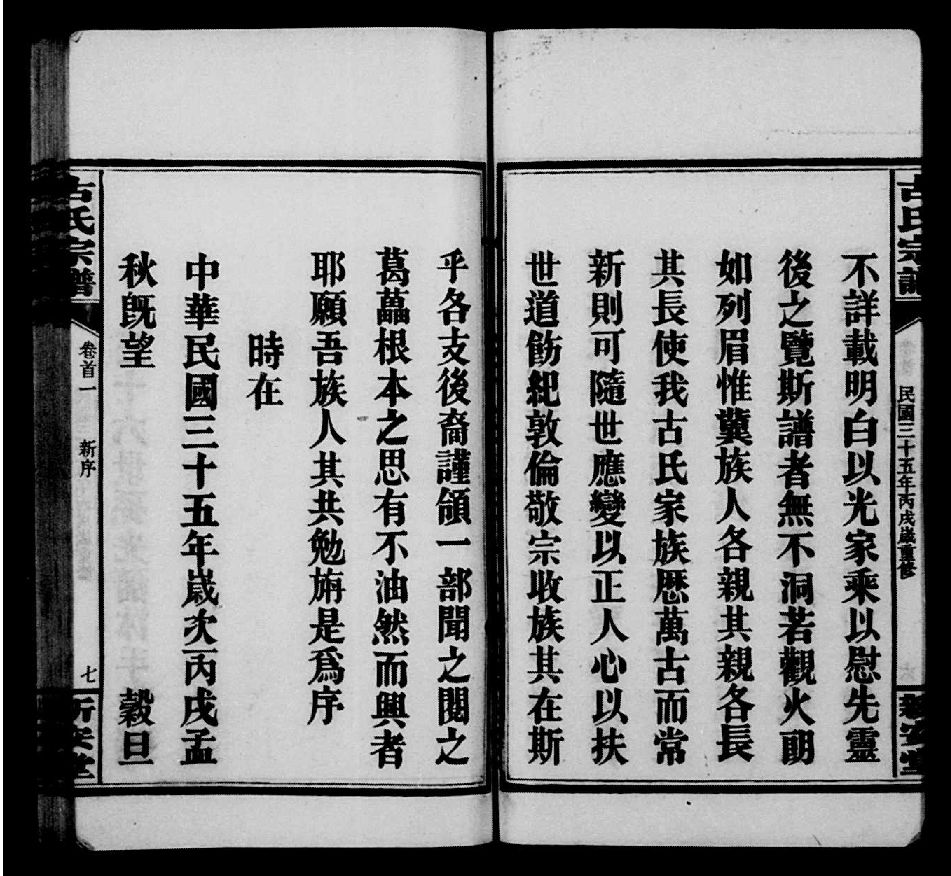 古氏宗譜
民國三十五年丙戌歲重修
新安堂
不詳載明白以光家乘以慰先靈
後之覽斯譜者無不洞若觀火朗
如列眉惟冀族人各親其親各長
其長使我古氏家族歷萬古而常
新則可隨世應變以正人心以扶
世道飭紀敦倫敬宗收族其在斯
乎各支後裔謹領一部聞之閱之
葛藟根本之思有不油然而興者
耶願吾族人其共勉旃是爲序
時在
中華民國三十五年歲次丙戌孟
秋旣望 穀旦
古氏宗譜
卷首一 新序 七
新安堂